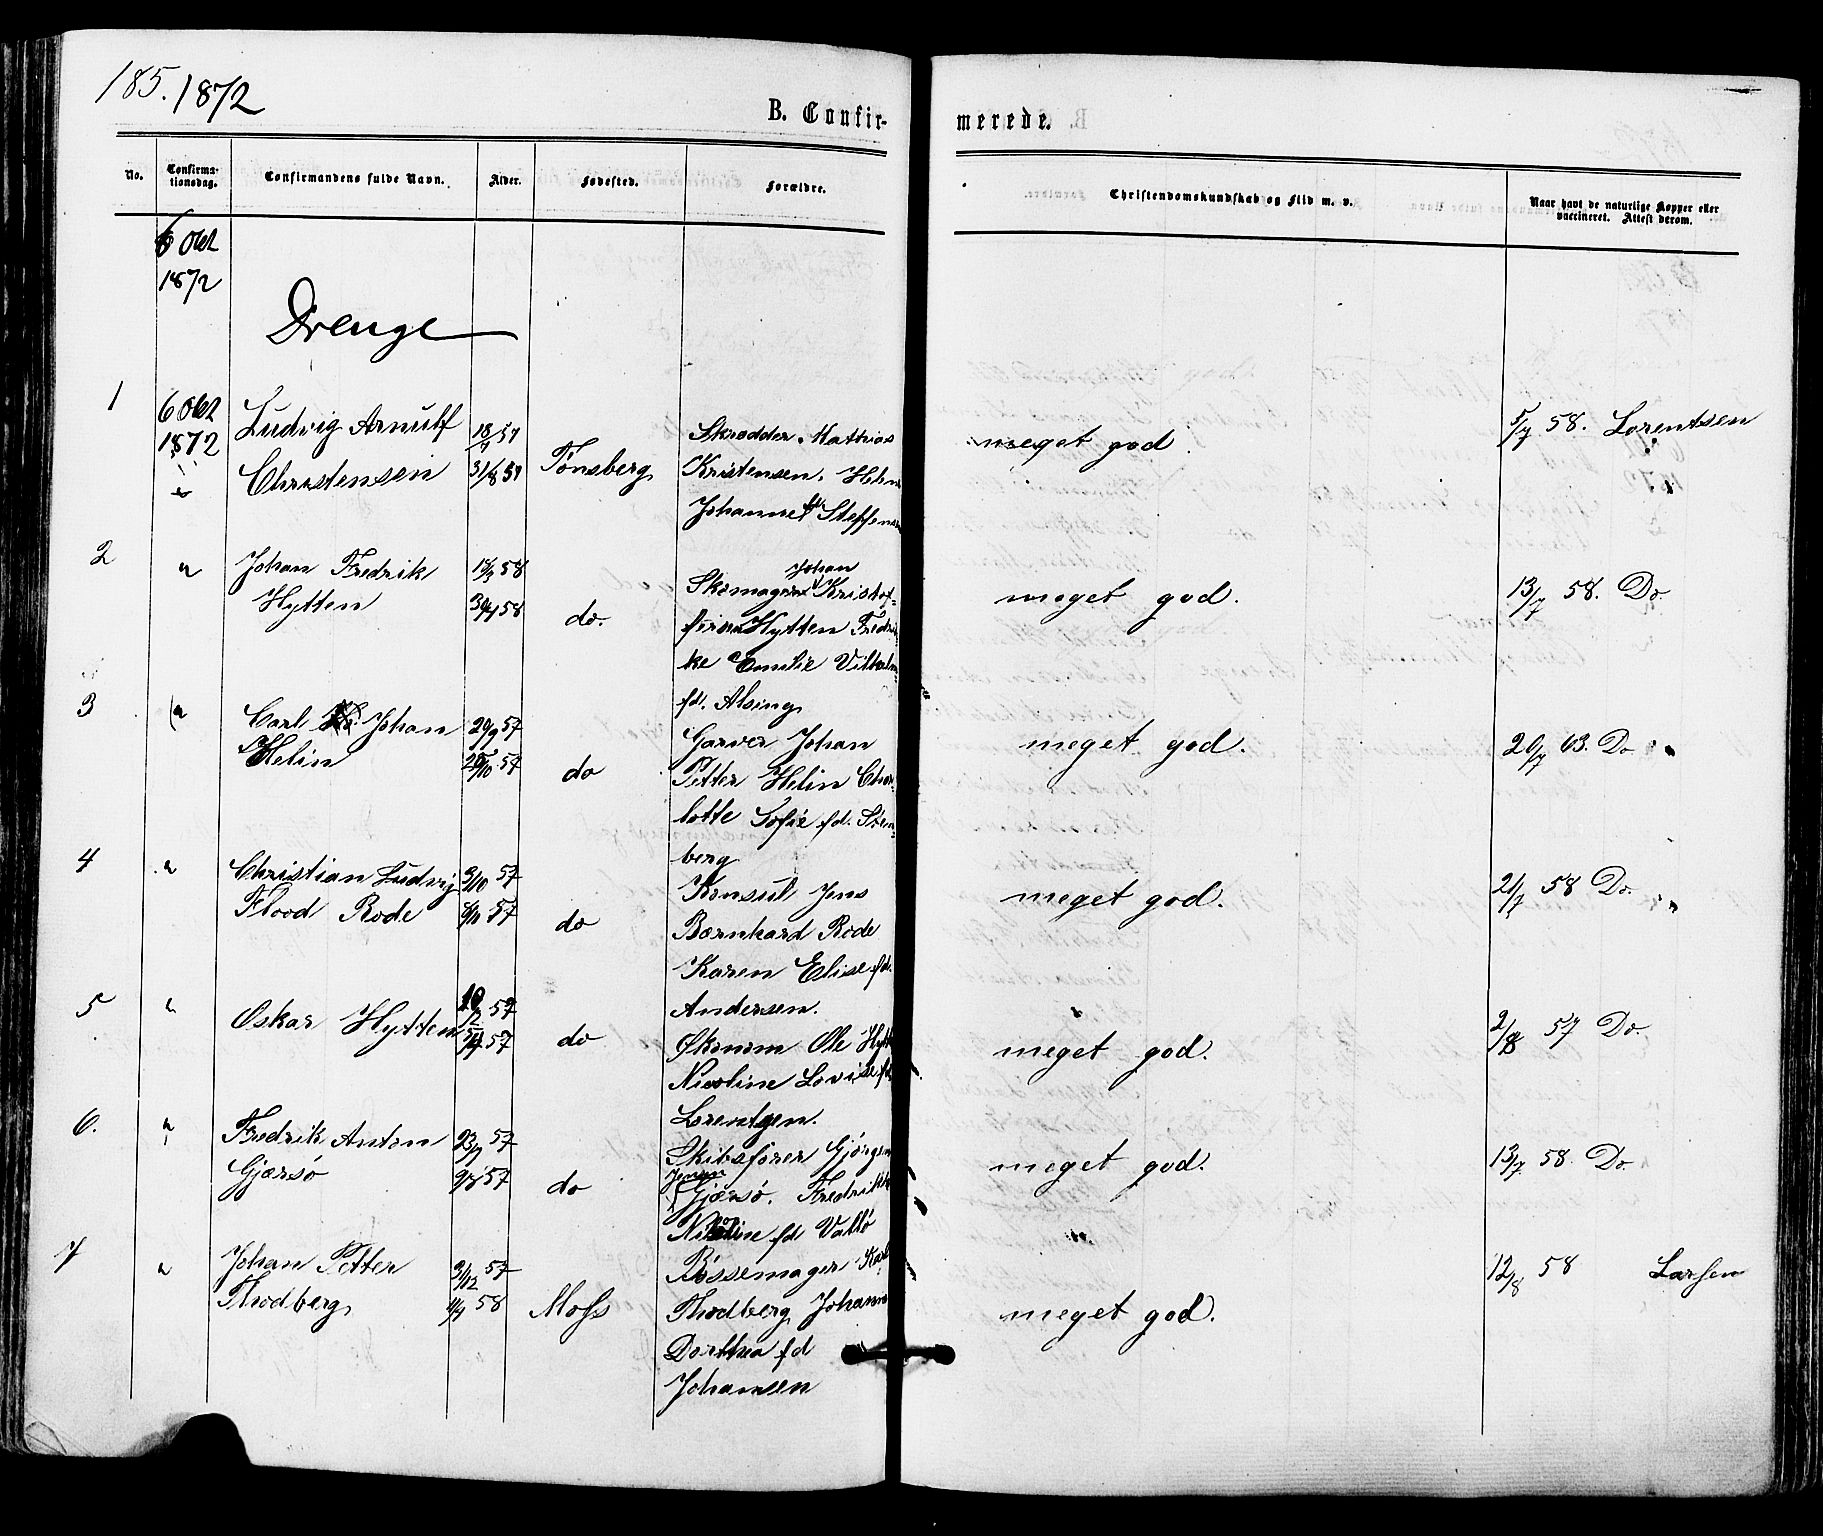 185. 1872
B. Confir-
merede.
No.
Confirma-
tionsdag.
Confirmandens fulde Navn.
Alder.
Fødested.
Forældre.
Christendomskundskab og Flid m. v.
Naar havt de naturlige Kopper eller
vaccineret. Attest derom.
6 Okt
1872
Drenge
1
6 Okt
1872
Ludvig Arnulf
Christensen
31/8 57
Tønsberg
Skrædder Mathias
Kristensen.
Johanne fd. Steffensen
meget god
5/7 58. Lorentsen
2
"
Johan Fredrik
Hytten
58
58
do.
Johan
Skomager Kristof-
Hytten Fredri-
ke Emilie Vilhelm-
fd. Alsing
meget god.
13/7 58. Do.
3
"
Carl Johan
Helin
29/9 57
57
do
Garver Johan
Petter Helin Char-
lotte Sofie fd. Sten-
berg
meget god.
20/7 63. Do
4
"
Christian Ludvig
Flood Rode
3/10 57
57
do
Konsul Jens
Bernhard Rode
Karen Elise fd.
Andersen.
meget god.
21/7 58 Do.
5
"
Oskar Hytten
57
57
do
Økonom Ole Hytt
Nicoline Lovise fd.
Lorentzen.
meget god.
2/8 57 Do.
6.
"
Fredrik Anton
Gjærsø
57
57
do
Skibsfører Gjørgen
Jensen
Gjærsø. Fredrikk
fd Vallø
meget god.
13/7 58. Do
7
"
Johan Petter
Thodberg
31/12 57
58
Moss
Bøssemager Karl
Thodberg Johanne
Dorthea fd
Johansen
meget god.
12/8 58 Larsen